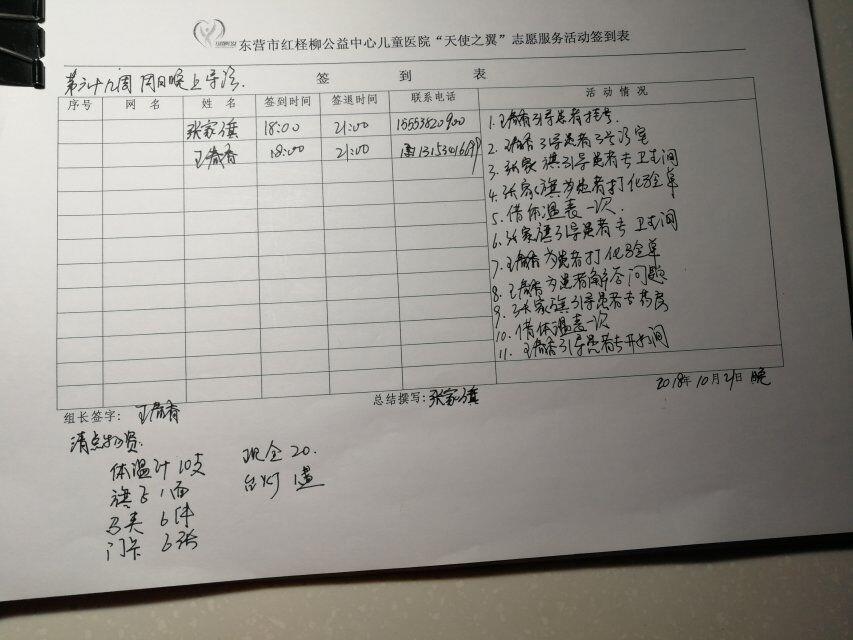 东营市红柽柳公益中心儿童医院“天使之翼”志愿服务活动签到表
第六十九周 周日晚上导诊.
签 到 表
序号 网 名 姓 名 签到时间 签退时间 联系电话 活 动 情 况
张家旗 18:00 21:00 15553820900
王春香 18:00 21:00
1.王春香引导患者挂号.
2.王春香引导患者3号诊室
3.张家旗引导患者去卫生间
4.张家旗为患者打化验单
5.借体温表一次.
6.张家旗引导患者去卫生间
7.王春香为患者打化验单
8.王春香为患者解答问题
9.张家旗引导患者去药房
10.借体温表一次
11.王春香引导患者去开水间
组长签字: 王春香
总结撰写:张家旗
2018年10月21日 晚
清点物资.
体温计10支 现金20.
旗子1面 台灯1盏
马夹6件
门卡6张